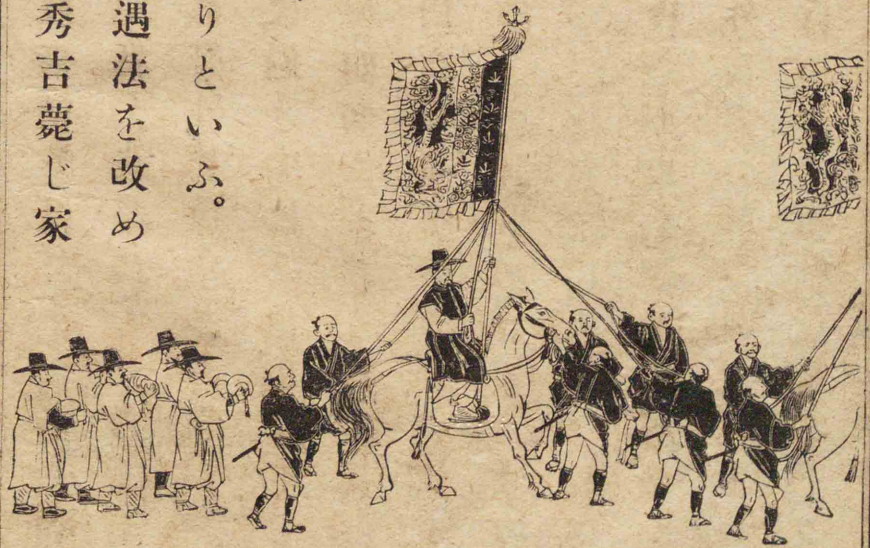 りといふ。
遇法を改め
秀吉薨じ家